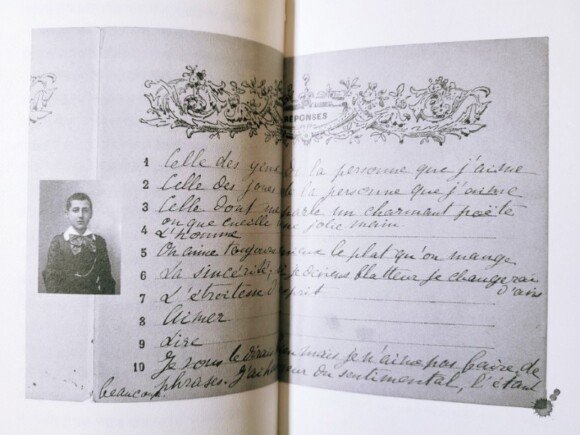 RÉPONSES
1 Celle des yeux de la personne que j'aime
2 Celle des joues de la personne que j'aime
3 Celle dont parle un charmant poëte
ou que cueille une jolie main
4 L'homme
5 On aime toujours le plat qu'on mange
6 La sincérité, si je deviens flatteur je changerai
d'avis
7 L'étroitesse d'esprit
8 Aimer
9 Lire
10 Je vous le dirais bien mais je n'aime pas faire de
phrases. J'ai horreur du sentimental, l'étant
beaucoup.